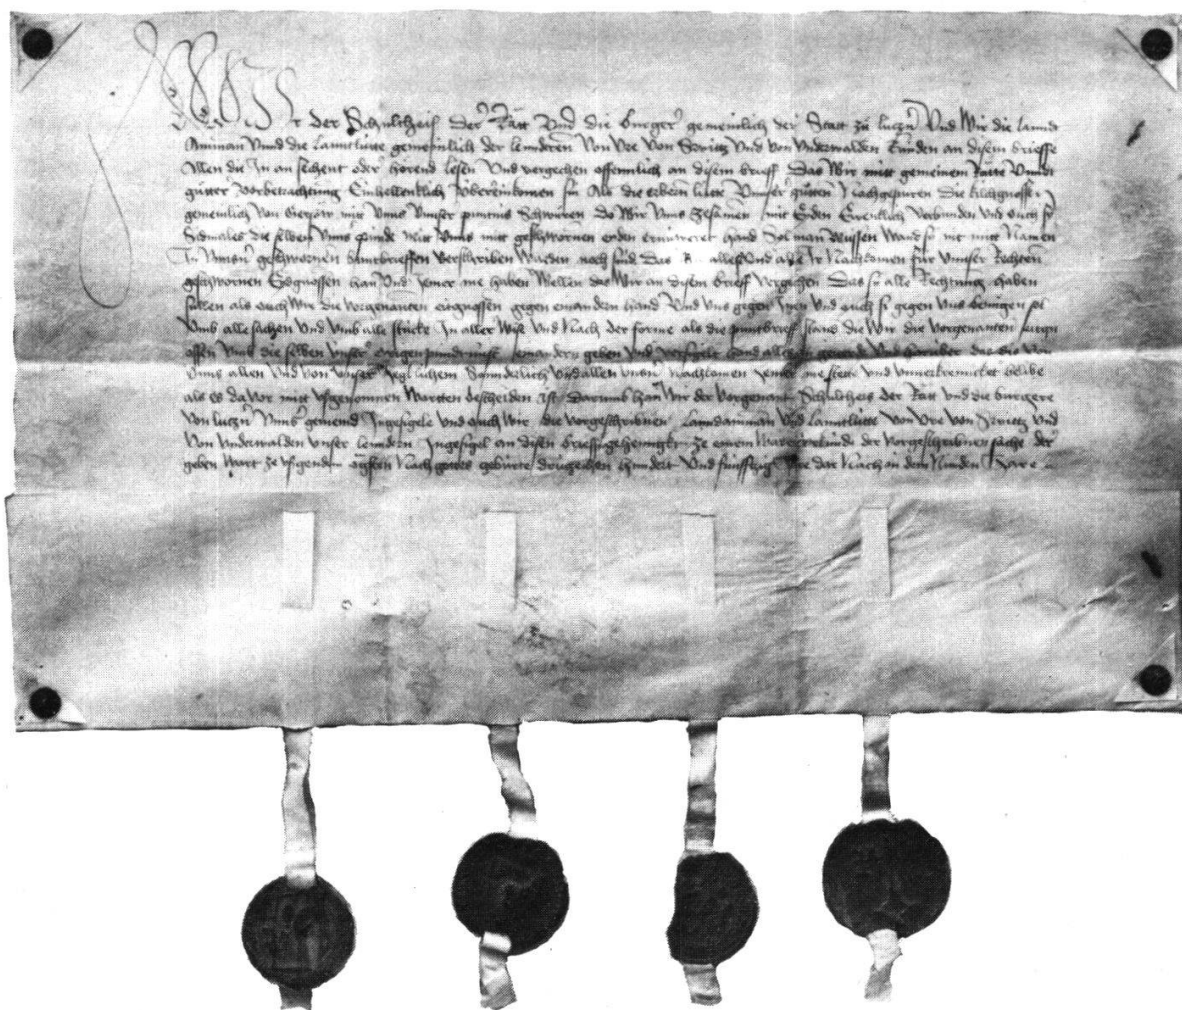 Wir der Schultheis der Rätt Und die burger gemeinlich der Statt zu lucz'n Und Wir die Lannd
Amman Unnd die Lanntlütte gemeinlich der lenndren Von Ure Von Switz Und von Underwalden künden an disem brieffe
Allen die In an sechent oder hörend lesen Und vergechen offennlich an disem brieff Das Wir mitt gemeinem Ratte Unnd
gůtter Vorbetrachtung Einhellenklich Uberkomen sin Als die erbern lütte Unnser gůtten Nachgepuren die kilchgnossen
gemeinlich Von Gersow mit Unns Unnser puntnis Schwůren do Wir Unns Zesamen mit Eiden Ewenklich Verbunden Und ouch si
Sidmales die selben Unns pünde Mitt Unns mitt geschwornen eiden ernüweret hand Sol man Wüssen Wand si nit mitt Namen
In Unnsern geschwornen puntbrieffen Verschriben Warden noch sind Das Wir alle Und alle Ir Nachkomen für Unnser Rechten
geschwornen Eidgnossen han Und Jemer me haben Wellen des Wir an disem brieff Vergechen Das si alle Rechtung haben
sullen als ouch Wir die Vorgenanten eignossen gegen einandern hand Und Uns gegen Inen Und ouch si gegen Uns benügen sol
Umb alle sachen Und Umb alle stücke In aller Wise Und Nach der forme als die puntbrieff stand die Wir die Vorgenanten
Umb die selben Unser ewigen puntnüsse einandern geben Und Versigelt hand
Unns allen Und von Unser Jegklichem Sunderlich Und allen Unsern Nachkomen Jemer me stette Und Unverkrencket belibe
als es da Vor mitt Usgenomen Wortten bescheiden ist Darumb han Wir der Vorgenant Schultheis der Rätt Und die burgere
von lucz'n Unns gemeind Ingesigele Und ouch Wir die Vorgeschribnen Landamman Und Lanntlütte von Ure von Switz Und
Von Underwalden Unser lenndren Ingesigel an disen brieff gehenngkt ze einem Waren Urkünd der Vorgeschribnen sache der
geben Wart ze Usgendem ougsten Nach gottes gebürte drüzechen hundert Und fünffzig Jare dar Nach in dem Nünden Jare